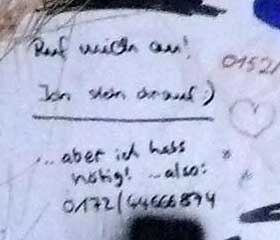 Ruf mich an!
0152/
Ich steh drauf :)
...aber ich habs
nötig! ...also:
0172/44666874